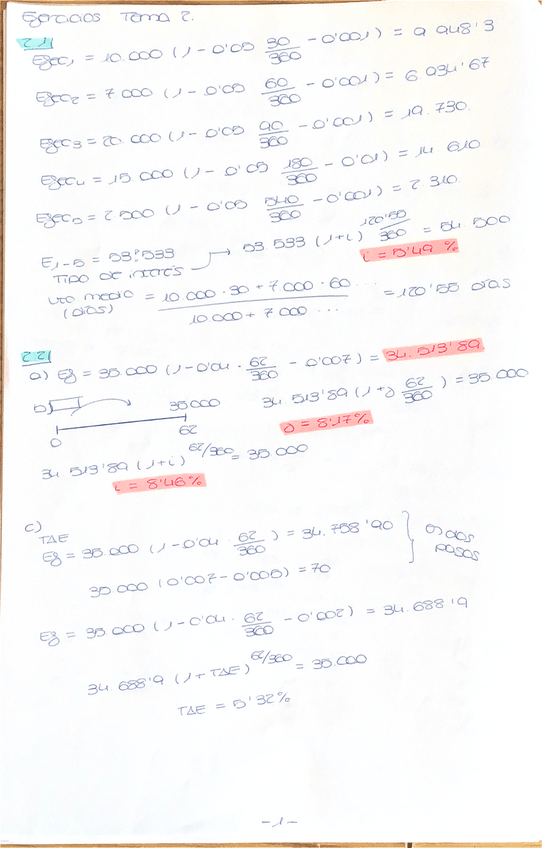 Ejercicios Tema 2.
2.1
Efec1 = 10.000 (1 - 0'05 30/360 - 0'001) = 9 948'3
Efec2 = 7 000 (1 - 0'05 60/360 - 0'001) = 6 934'67
Efec3 = 20.000 (1 - 0'05 90/360 - 0'001) = 19.730.
Efec4 = 15.000 (1 - 0'05 180/360 - 0'01) = 14 610
Efec5 = 2 500 (1 - 0'05 540/360 - 0'001) = 2 310.
E1-5 = 53.533 → 53.533 (1+i)^120'55/360 = 54.500
Tipo de interés i = 5'49 %
Vto medio (días) = 10 000 · 30 + 7 000 · 60 ... / 10 000 + 7 000 ... = 120'55 días
2.2
a) Ef = 35.000 (1 - 0'04 · 62/360 - 0'007) = 34.513'89
b) 35000 0 62 34 513'89 (1+j 62/360) = 35 000
j = 8'17%
34 513'89 (1+i)^62/360 = 35 000
i = 8'46%
c)
TAE
Ef = 35.000 (1 - 0'04 · 62/360) = 34.758'90
35.000 (0'007 - 0'005) = 70
pasos
Ef = 35.000 (1 - 0'04 · 62/360 - 0'002) = 34.688'9
34.688'9 (1 + TAE)^62/360 = 35.000
TAE = 5'32%
-1-